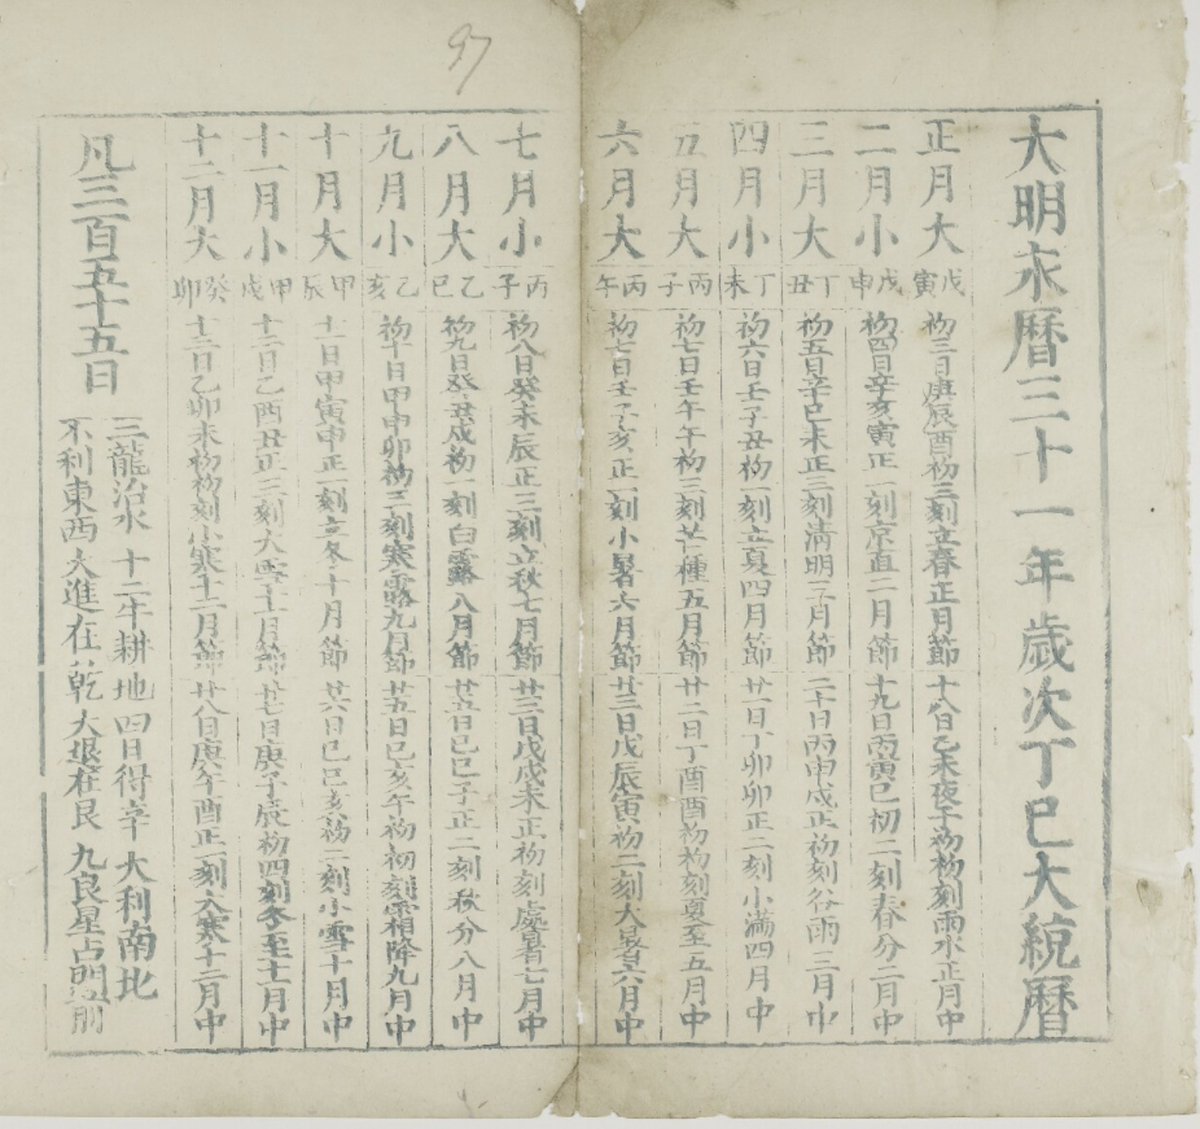 97
大明永曆三十一年歲次丁巳大統曆
正月大 戊寅 初三日庚辰酉初三刻立春正月節 十八日乙未夜子初初刻雨水正月中
二月小 戊申 初四日辛亥寅正一刻京直二月節 十九日丙寅巳初二刻春分二月中
三月大 丁丑 初五日辛巳未正三刻清明三月節 二十日丙申戌正初刻谷雨三月中
四月小 丁未 初六日壬子丑初一刻立夏四月節 廿一日丁卯卯正二刻小滿四月中
五月大 丙子 初七日壬午午初三刻芒種五月節 廿二日丁酉酉初初刻夏至五月中
六月大 丙午 初七日壬子亥正一刻小暑六月節 廿三日戊辰寅初二刻大暑六月中
七月小 丙子 初八日癸未辰正三刻立秋七月節 廿三日戊戌未正初刻處暑七月中
八月大 乙巳 初九日癸丑戌初一刻白露八月節 廿五日己巳子正二刻秋分八月中
九月小 乙亥 初十日甲申卯初三刻寒露九月節 廿五日己亥午初初刻霜降九月中
十月大 甲辰 十一日甲寅申正一刻立冬十月節 廿六日己巳亥初二刻小雪十月中
十一月小 甲戌 十二日乙酉丑正三刻大雪十一月節 廿七日庚子辰初四刻冬至十一月中
十二月大 癸卯 十三日乙卯未初初刻小寒十二月節 廿八日庚午酉正一刻大寒十二月中
凡三百五十五日
三龍治水 十二牛耕地 四日得辛 大利南北
不利東西 大進在乾 大退在艮 九良星占門前